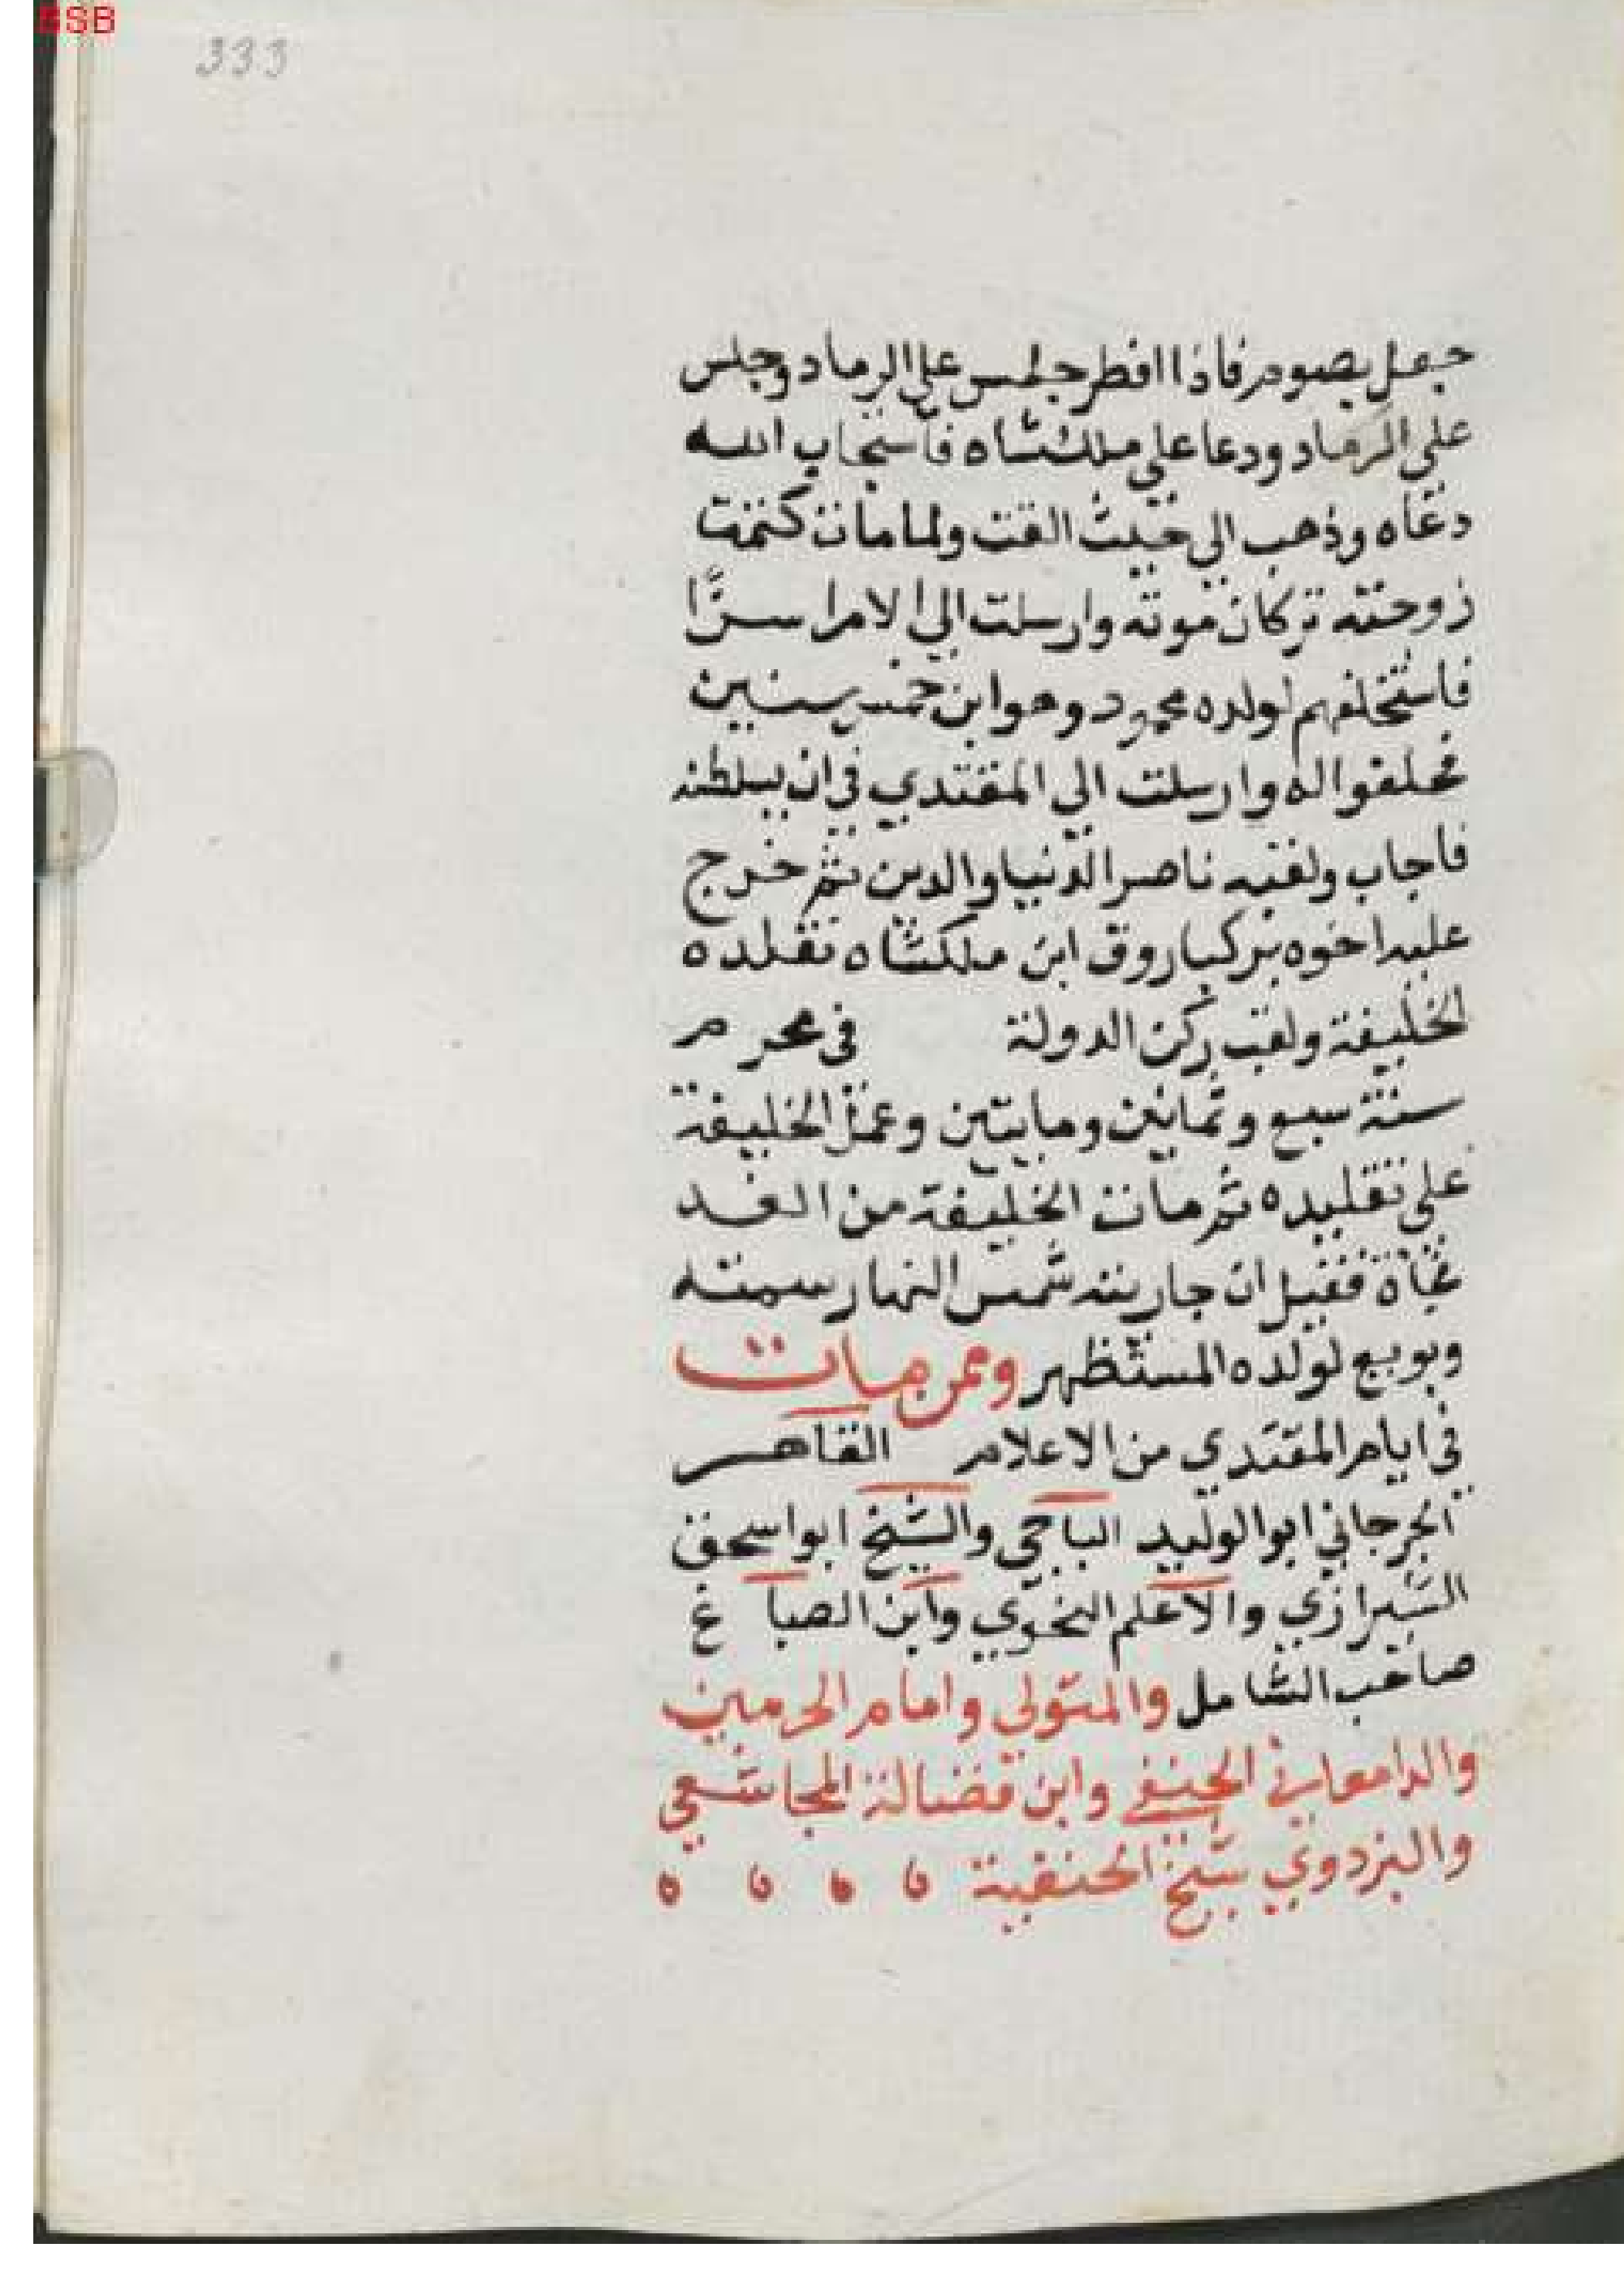 BSB
333
جعل يصوم فاذا افطر جلس على الرماد وجلس
على الرماد ودعا على ملكشاه فاستجاب الله
دعاه وذهب الى حيث القت ولما مات كتمت
زوجته تركان موته وارسلت الي الامرا سرًّا
فاستحلفهم لولده محمود وهو ابن خمس سنين
فحلفوا له وارسلت الي المقتدي في ان يسلطنه
فاجاب ولقبه ناصر الدنيا والدين ثم خرج
عليه اخوه بركياروق ابن ملكشاه تقلده
الخليفة ولقب ركن الدولة في محرم
سنة سبع وثمانين ومايتين وعمل الخليفة
على تقليده ثم مات الخليفة من الغد
فجأة فقيل ان جاريته شمس النهار سمته
وبويع لولده المستظهر وممن مات
في ايام المقتدي من الاعلام القاهر
الجرجاني ابو الوليد الباجي والشيخ ابو اسحق
الشيرازي والاعلم النحوي وابن الصباغ
صاحب الشامل والمتولي وامام الحرمين
والدامعاني الحنفي وابن فضالة المجاشعي
والبزدوي شيخ الحنفية